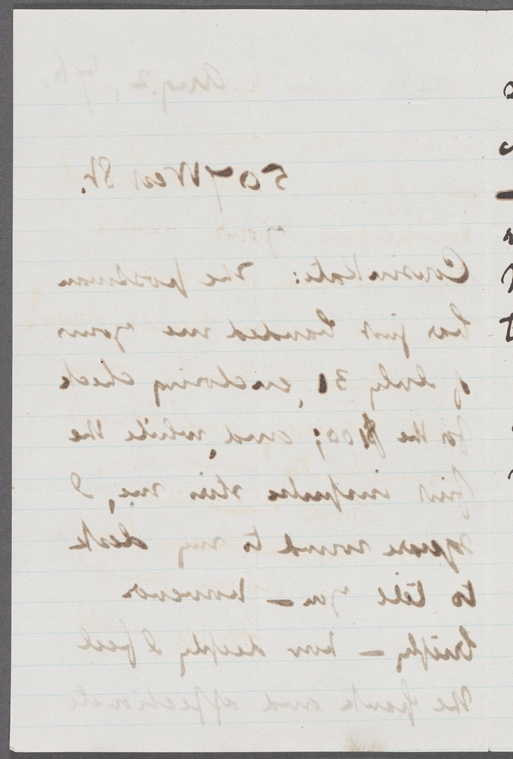 Aug 2, 76.
507 West St.
Cousin Kate: The postman
has just handed me yours
of July 31, enclosing check
for the $100; and, while the
first impulse this me, I
square round to my desk
to tell you — however
briefly — how deeply I feel
the frank and affectionate